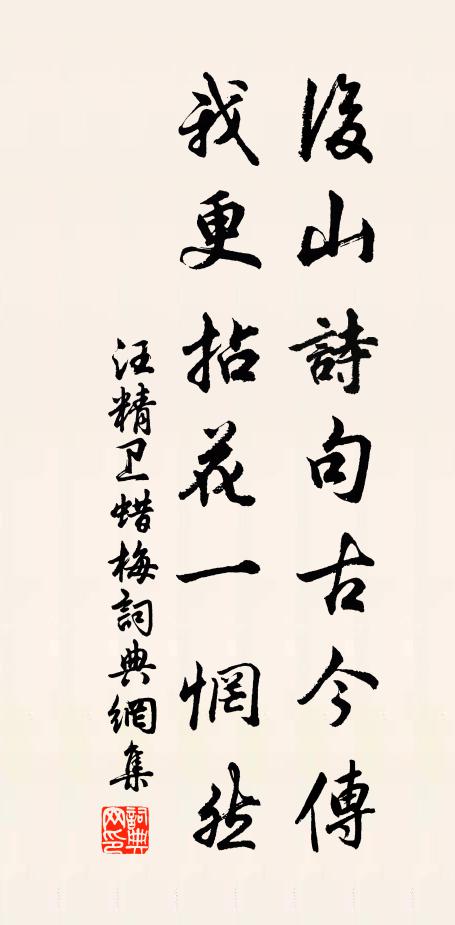 後山詩句古今傳
我更拈花一惘然
汪精卫蜡梅詞典網集
詞典網印